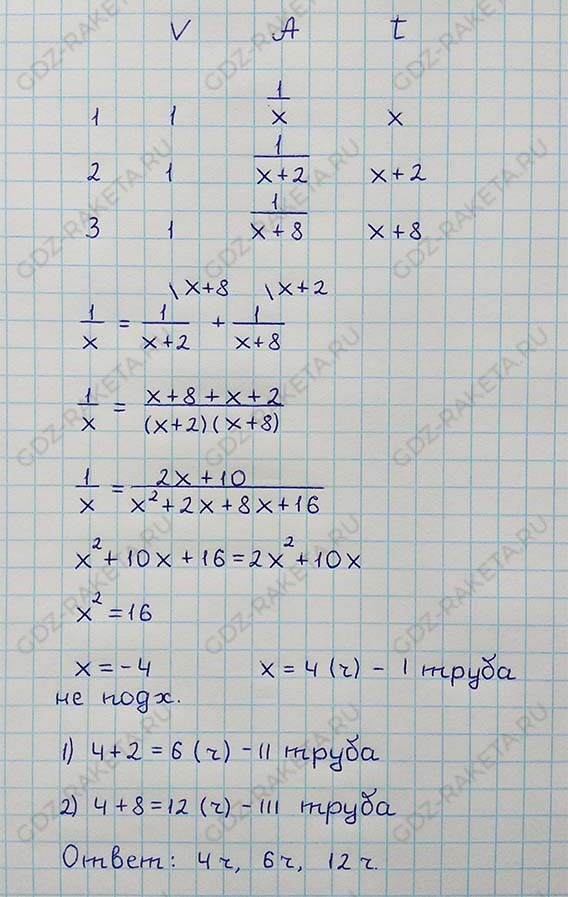 V A t
1 1 1/x x
2 1 1/(x+2) x+2
3 1 1/(x+8) x+8
\x+8 \x+2
1/x = 1/(x+2) + 1/(x+8)
1/x = (x+8+x+2)/((x+2)(x+8))
1/x = (2x+10)/(x²+2x+8x+16)
x²+10x+16=2x²+10x
x²=16
x=-4 x=4(ч) - I труба
не подх.
1) 4+2=6(ч) - II труба
2) 4+8=12(ч) - III труба
Ответ: 4ч, 6ч, 12ч.
GDZ-RAKETA.RU